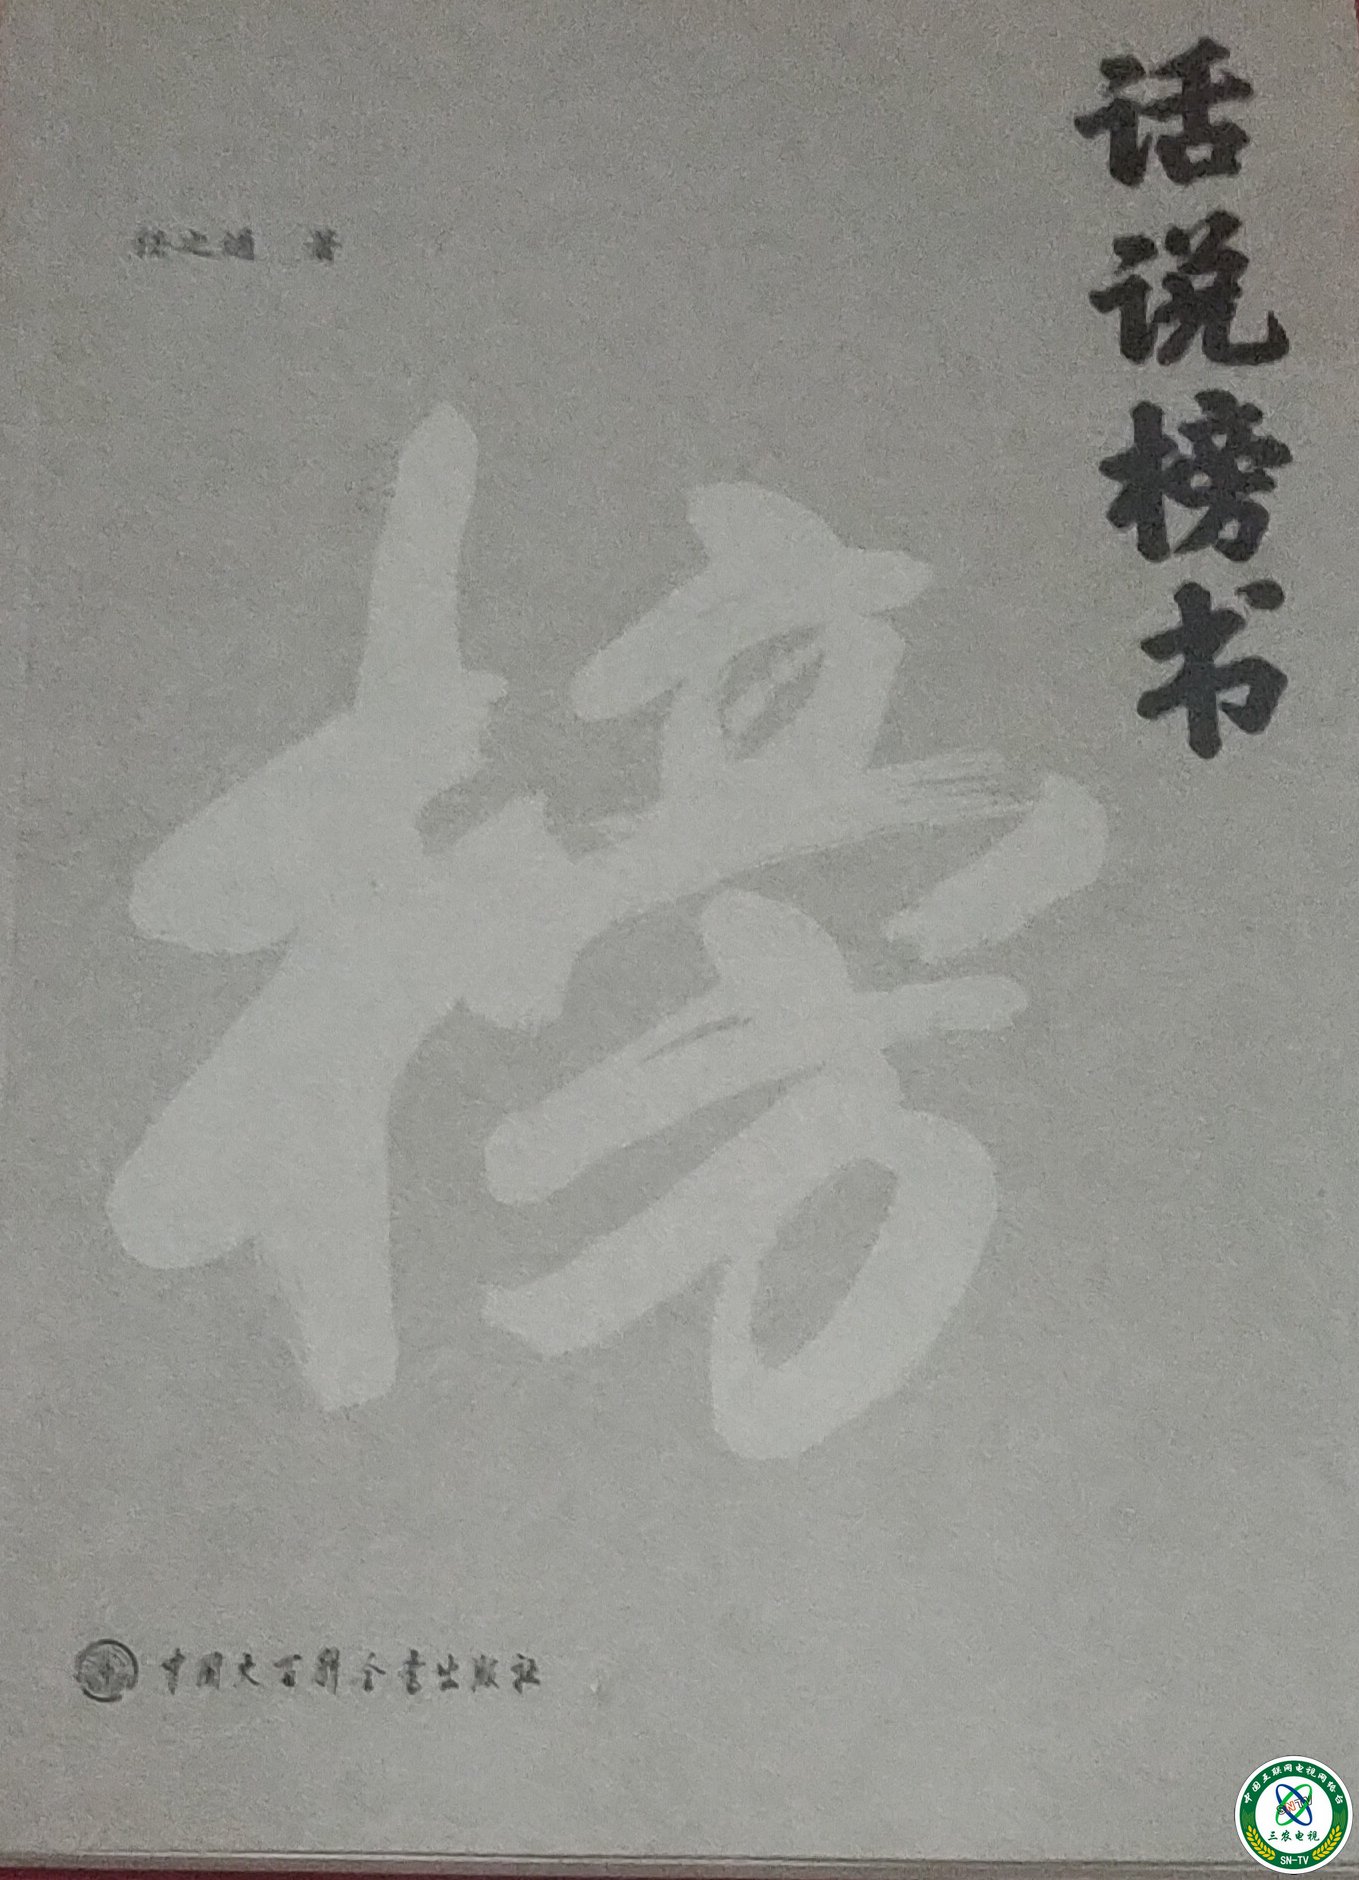 话说榜书
之通 著
榜
中国大百科全书出版社
中国互联网电视网络台
SNTV
三农电视
SN-TV